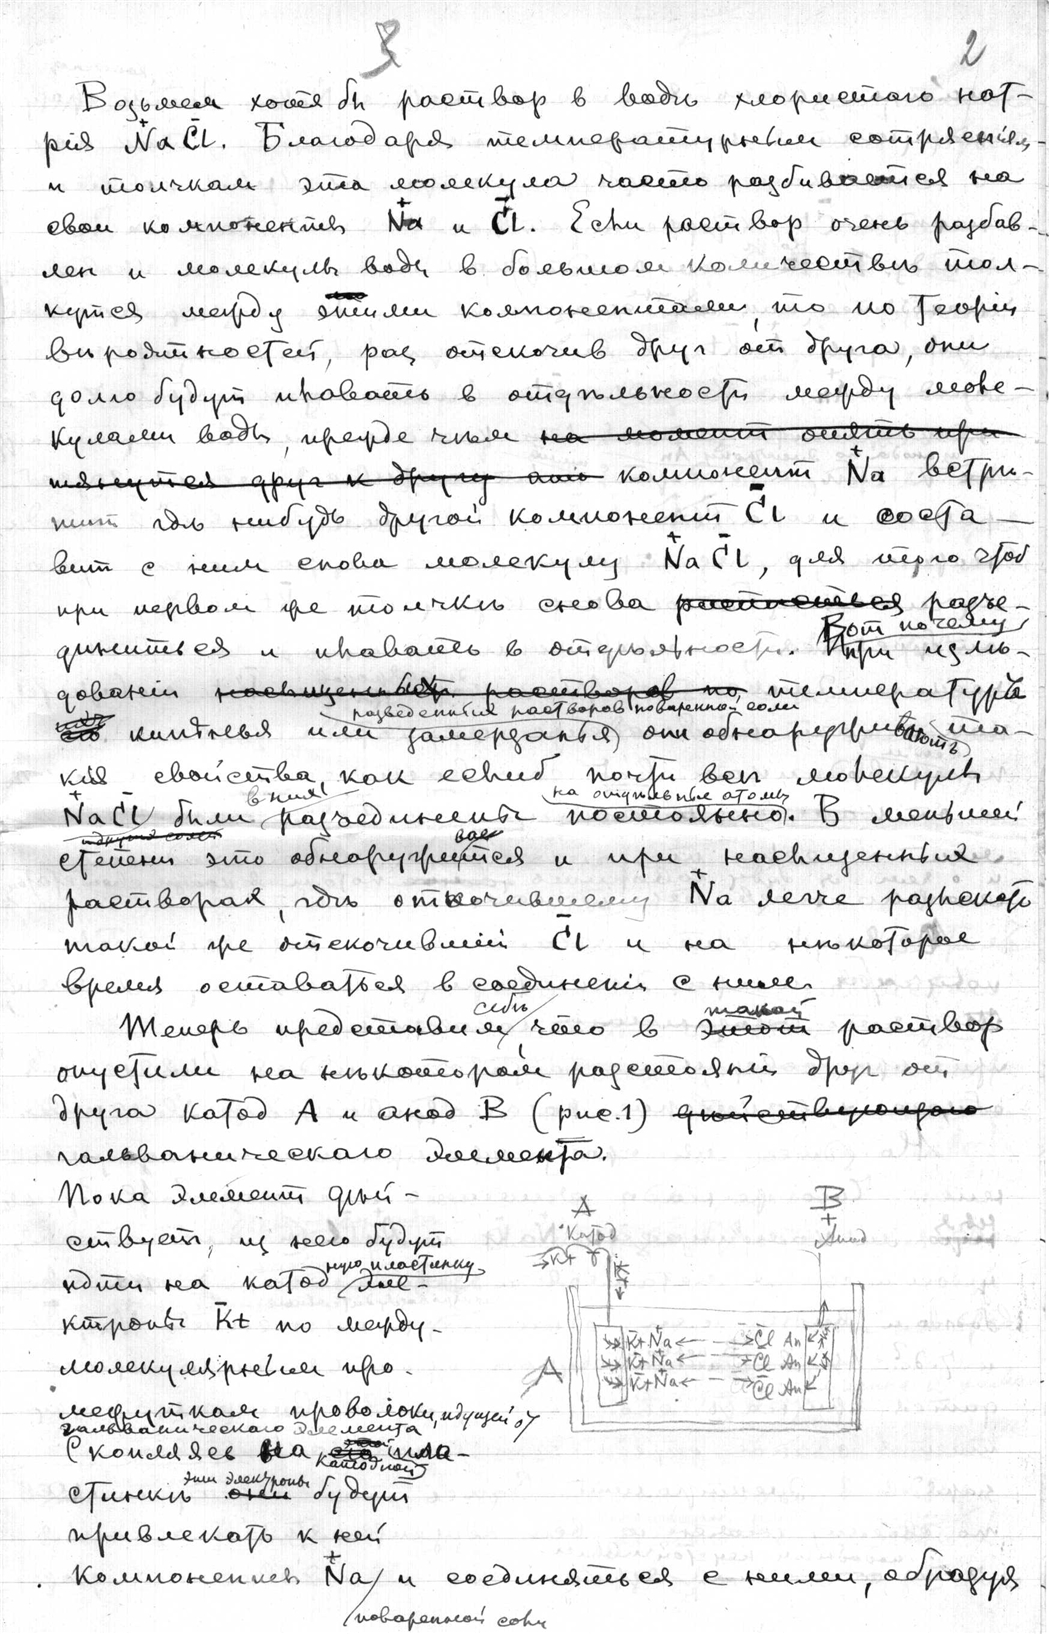 3
2
Возьмем хотя бы раствор в водѣ хлористаго нат-
рія N⁺aC⁻l. Благодаря температурным сотрясеніям
и толчкам эта молекула часто разбивается на
свои компоненты N⁺a и C⁻l. Если раствор очень разбав-
лен и молекулы воды в большом количествѣ тол-
кутся между этими компонентами, то по теоріи
вѣроятностей, раз отскочив друг от друга, они
долго будут плавать в отдѣльности между моле-
кулами воды, прежде чѣм на момент опять при
тянутся друг к другу компонент N⁺a встрѣ-
тит гдѣ нибудь другой компонент C⁻l и соста-
вит с ним снова молекулу N⁺aC⁻l, для того чтоб
при первом же толчкѣ снова разъе-
диниться и плавать в отдѣльности. Вот почему при изслѣ-
дованіи насыщенных растворов по температурѣ
разведенных растворов поваренной соли
кипѣнья или замерзанья они обнаруживают та-
кія свойства, как еслиб почти всѣ молекулы
N⁺aC⁻l были в них разъединены на отдѣльные атомы постоянно. В меньшей
степени это обнаруживается и при насыщенных
растворах, гдѣ отскочившему N⁺a легче разыскать
такой же отскочившій C⁻l и на нѣкоторое
время оставаться в соединеніи с ним.
Теперь представим себѣ, что в этот такой раствор
опустили на нѣкотором разстояніи друг от
друга катод A и анод B (рис.1) дѣйствующаго
гальваническаго элемента.
Пока элемент дѣй-
ствует, из него будут
идти на катодную пластинку эле-
ктроны K⁻+ по между-
молекулярным про-
межуткам проволоки, идущей от
гальваническаго элемента
Скопляясь на этой катодной пла-
стинкѣ они эти электроны будут
привлекать к ней
компоненты N⁺a и соединяться с ними, образуя
поваренной соли
A
Катод
K+
B
+
Анод
A
K⁻+N⁺a ← – – → C⁻l An
K⁻+N⁺a ← – – → C⁻l An
K⁻+N⁺a ← – – → C⁻l An